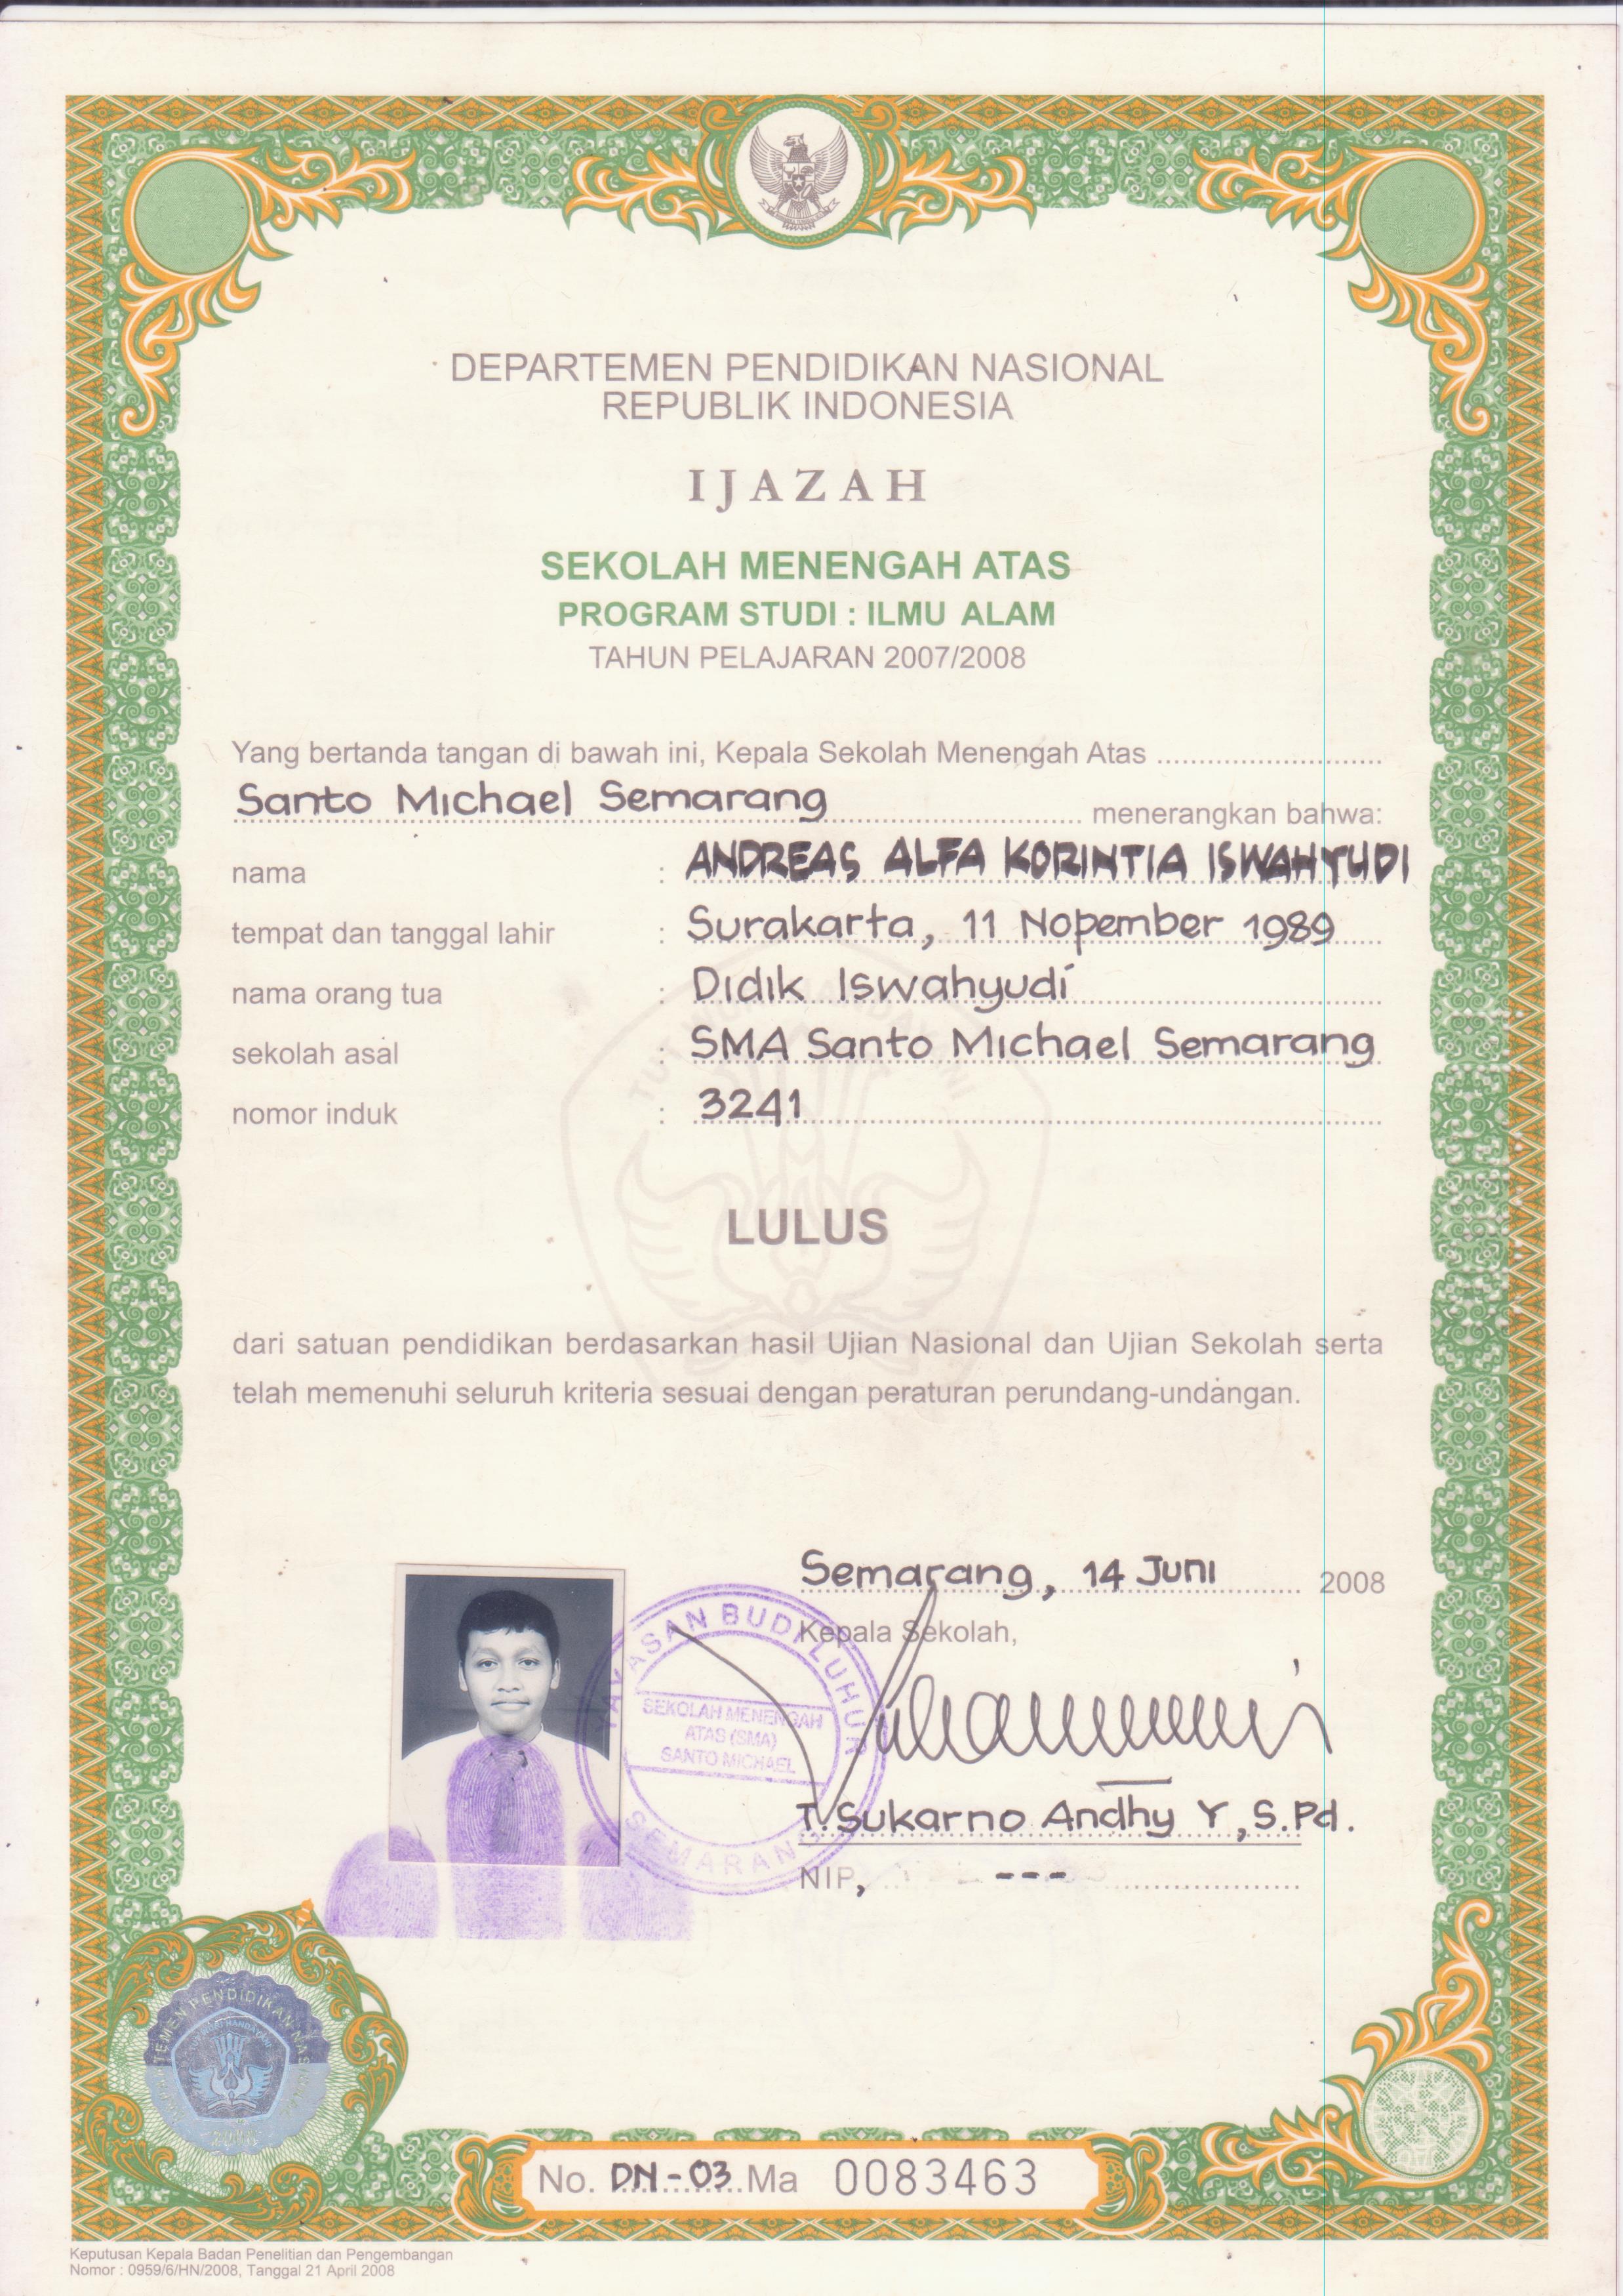 DEPARTEMEN PENDIDIKAN NASIONAL
REPUBLIK INDONESIA
IJAZAH
SEKOLAH MENENGAH ATAS
PROGRAM STUDI : ILMU ALAM
TAHUN PELAJARAN 2007/2008
Yang bertanda tangan di bawah ini, Kepala Sekolah Menengah Atas
Santo Michael Semarang menerangkan bahwa:
nama : ANDREAS ALFA KORINTIA ISWAHYUDI
tempat dan tanggal lahir : Surakarta, 11 Nopember 1989
nama orang tua : Didik Iswahyudi
sekolah asal : SMA Santo Michael Semarang
nomor induk : 3241
LULUS
dari satuan pendidikan berdasarkan hasil Ujian Nasional dan Ujian Sekolah serta
telah memenuhi seluruh kriteria sesuai dengan peraturan perundang-undangan.
Semarang, 14 Juni 2008
Kepala Sekolah,
YAYASAN BUDI LUHUR
SEKOLAH MENENGAH
ATAS (SMA)
SANTO MICHAEL
SEMARANG
T. Sukarno Andhy Y, S.Pd.
NIP, ---
No. DN-03 Ma 0083463
Keputusan Kepala Badan Penelitian dan Pengembangan
Nomor : 0959/6/HN/2008, Tanggal 21 April 2008